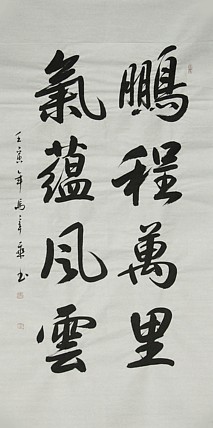 鵬程萬里
氣蘊风雲
壬寅年馬
书